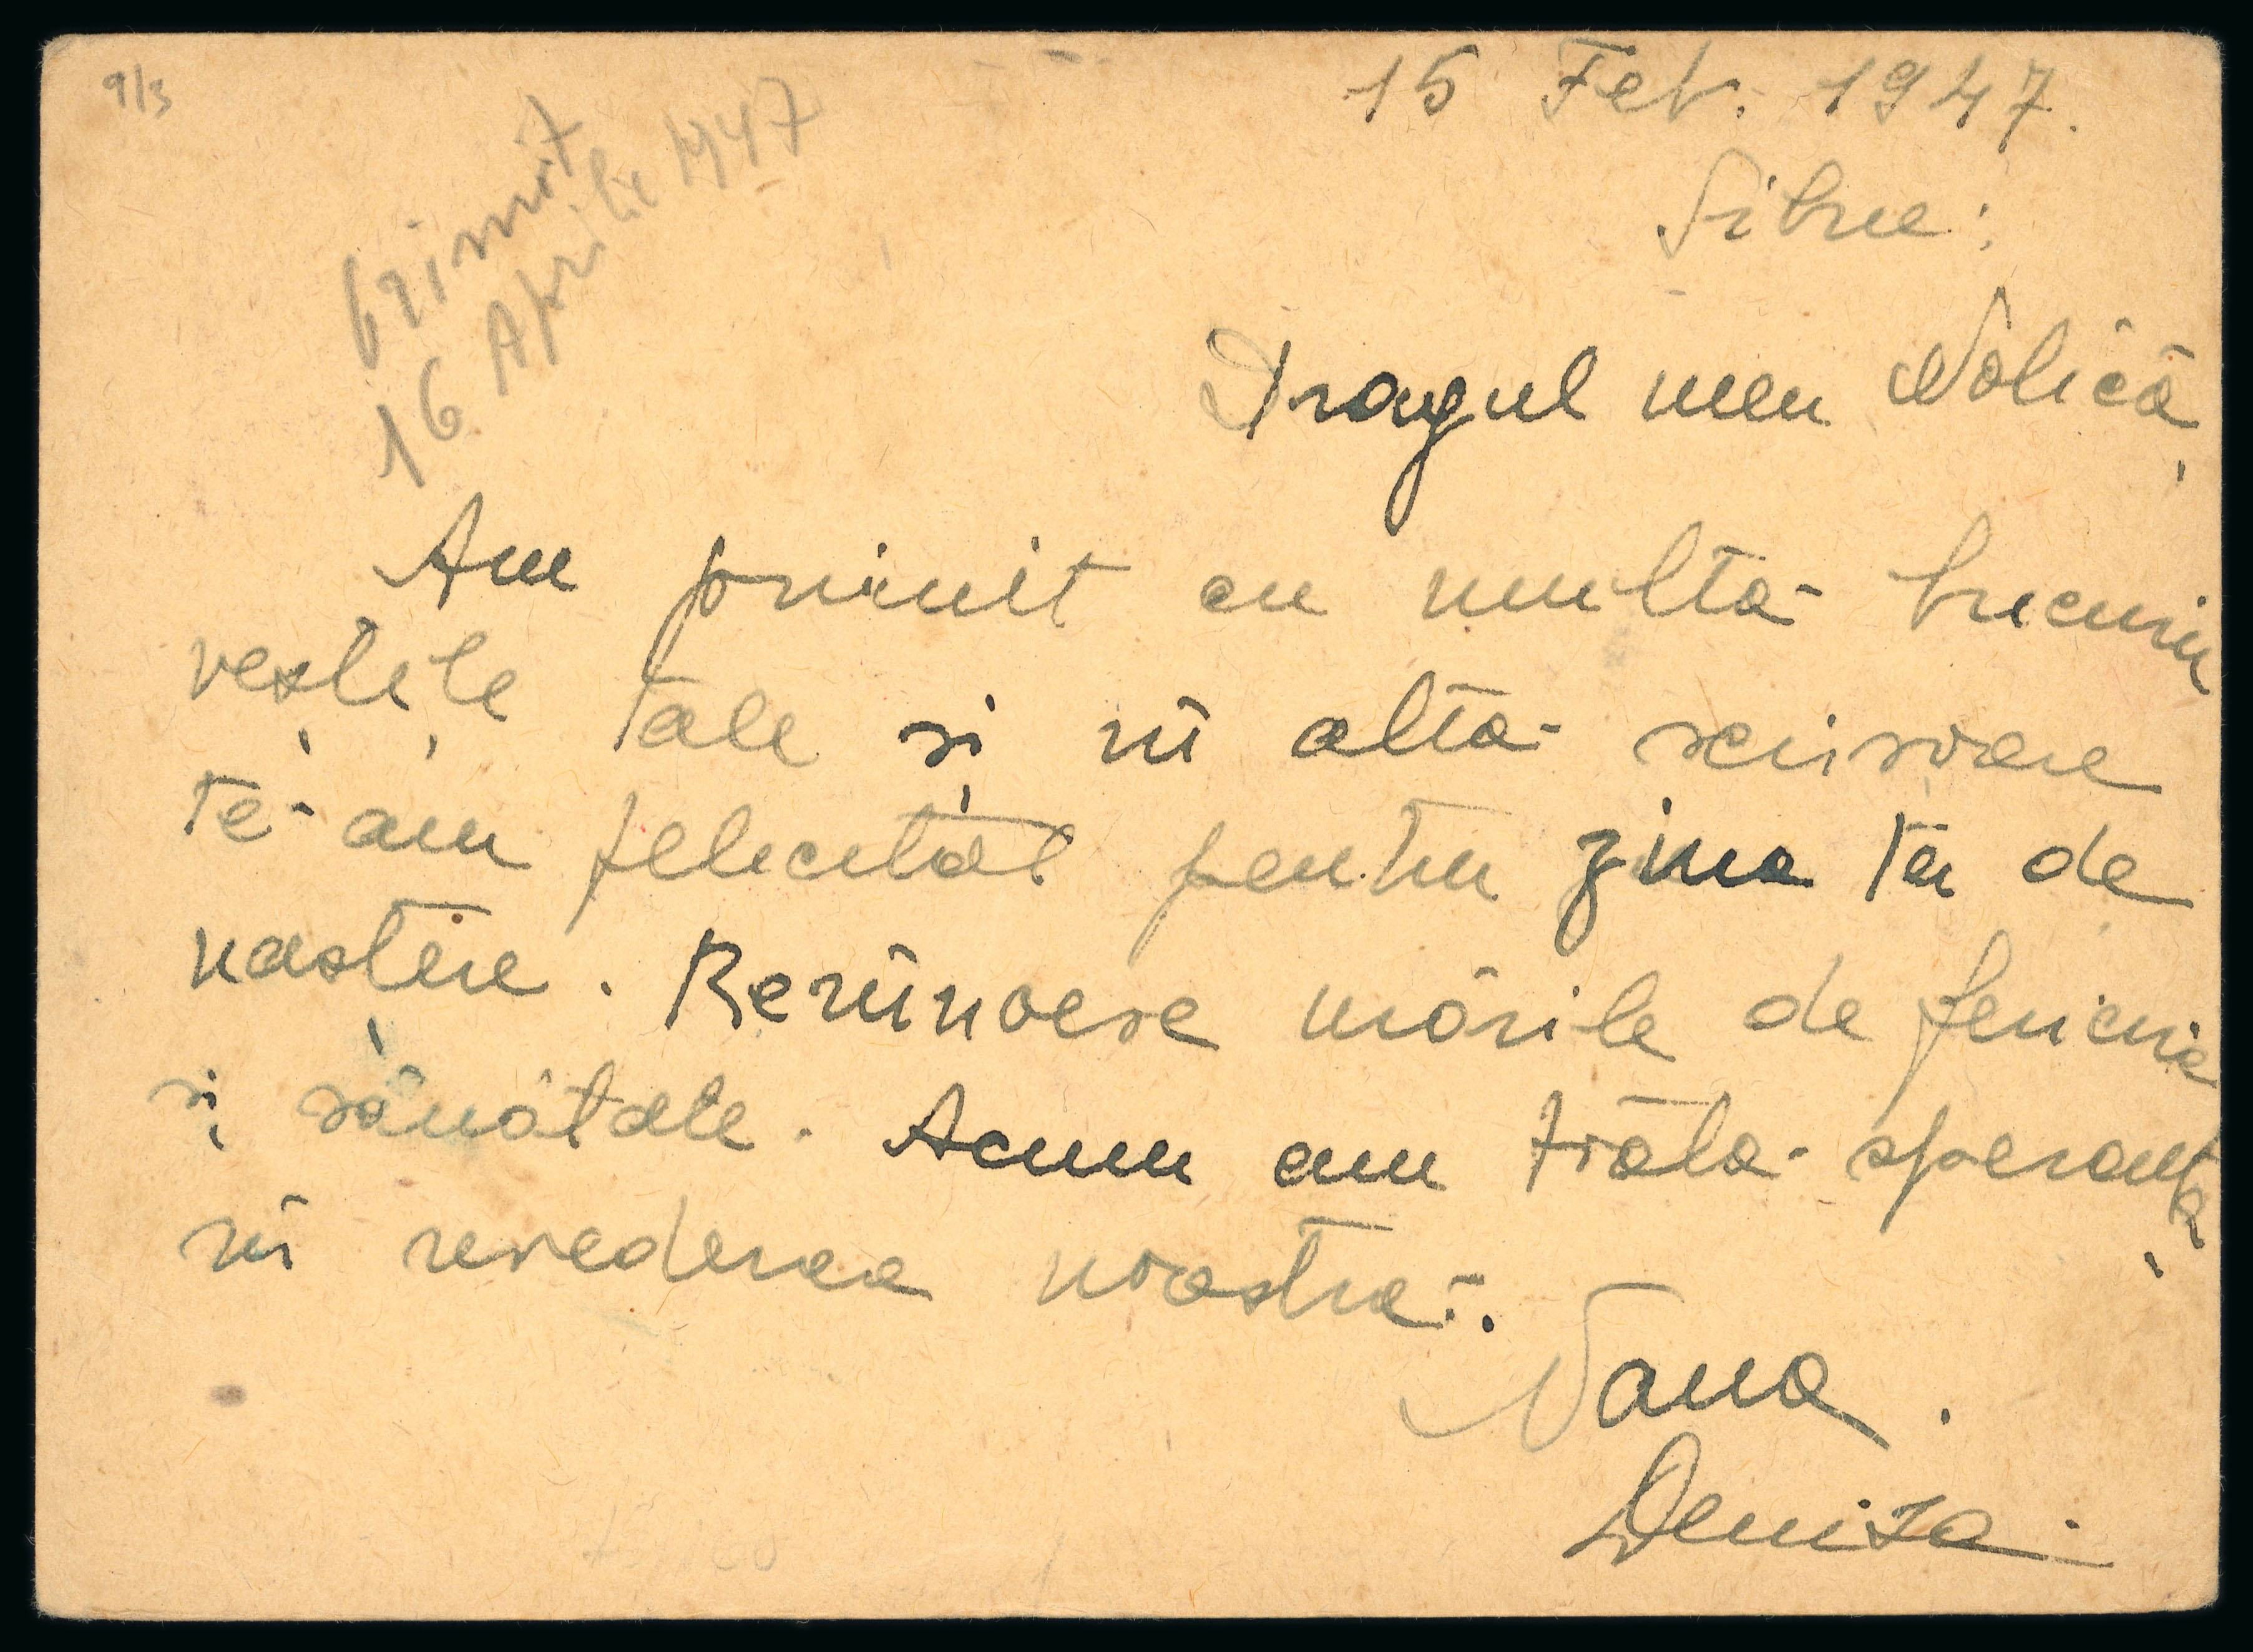 9/3
15 Feb. 1947.
Sibiu:
primit
16 Aprilie 1947
Dragul meu Nolică,
Am primit cu multă bucurie
veștile tale și în altă scrisoare
te-am felicitat pentru ziua ta de
naștere. Reînnoesc urările de fericire
și sănătate. Acum am toată speranța
în revederea noastră.
Nana.
Deniza.